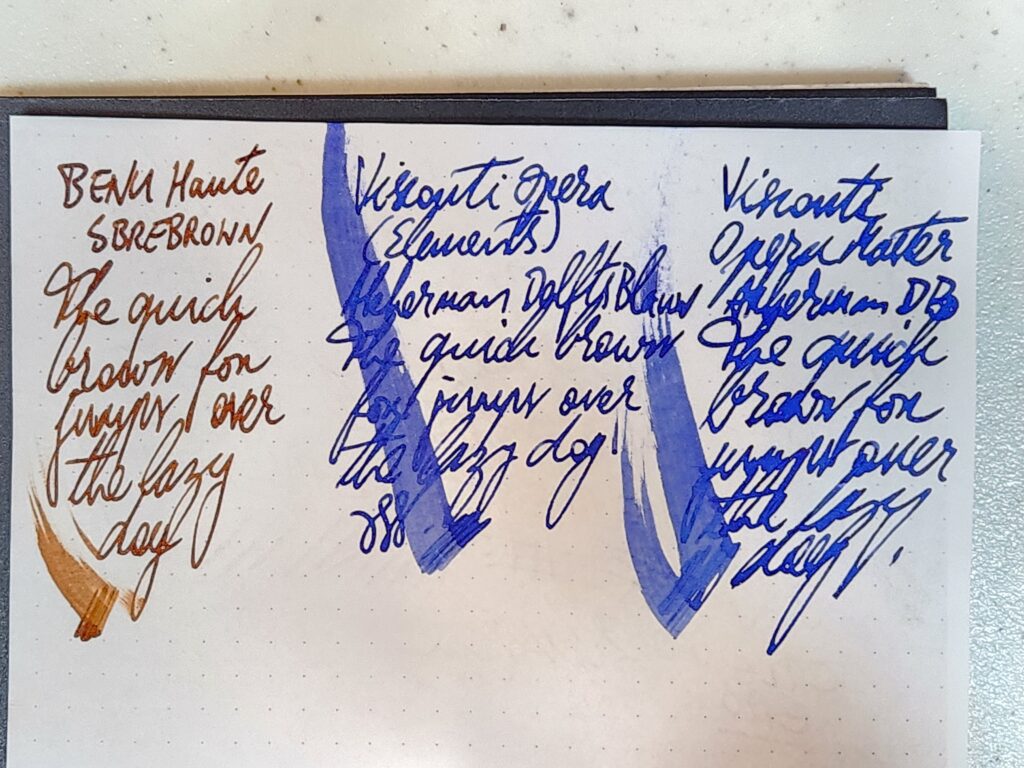 BENU Haute
SBREBROWN
The quick
brown fox
jumps over
the lazy
dog
Visconti Opera
(Elements)
Akkerman DelftsBlauw
The quick brown
fox jumps over
the lazy dog!
Visconti
Opera Master
Akkerman DB
The quick
brown fox
jumps over
the lazy
dog.